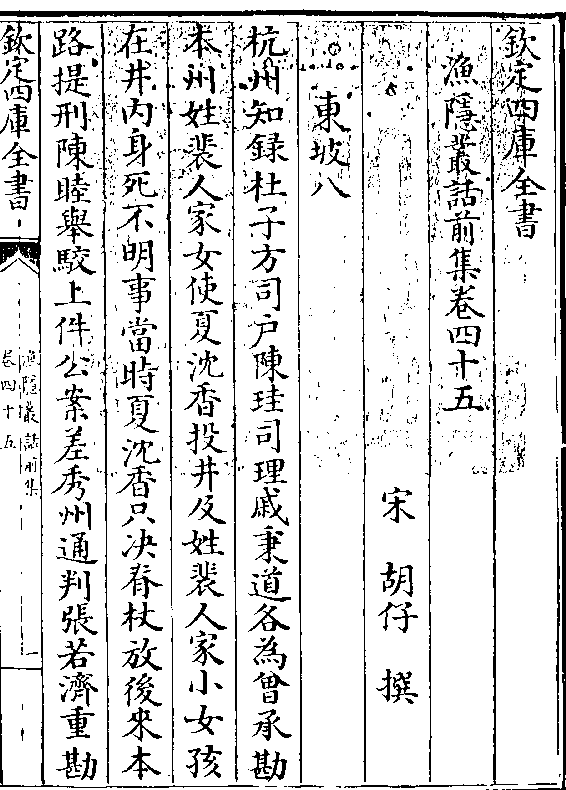 欽定四庫全書
漁隱叢話前集卷四十五
宋 胡仔 撰
東坡八
杭州知錄杜子方司户陳珪司理戚秉道各為曾承勘
本州姓裴人家女使夏沈香投井及姓裴人家小女孩
在井内身死不明事當時夏沈香只决脊杖放後來本
路提刑陳睦舉駮上件公案差秀州通判張若濟重勘
欽定四庫全書
漁隱叢話前集
卷四十五
一